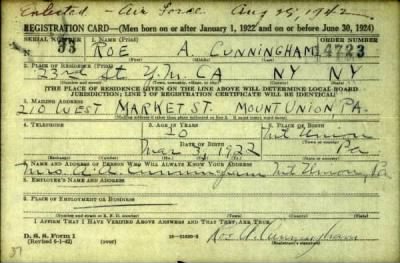 Enlisted - Air Force Aug 25, 1942
REGISTRATION CARD—(Men born on or after January 1, 1922 and on or before June 30, 1924)
SERIAL NUMBER 1. NAME (Print) ORDER NUMBER
N 33 ROE A. CUNNINGHAM 4723
(First) (Middle) (Last)
2. PLACE OF RESIDENCE (Print)
23rd St Y.M.CA NY NY
(Number and street) (Town, township, village, or city) (County) (State)
[THE PLACE OF RESIDENCE GIVEN ON THE LINE ABOVE WILL DETERMINE LOCAL BOARD
JURISDICTION; LINE 2 OF REGISTRATION CERTIFICATE WILL BE IDENTICAL]
3. MAILING ADDRESS
210 WEST MARKET ST. MOUNT UNION PA.
[Mailing address if other than place indicated on line 2. If same insert word same]
4. TELEPHONE 5. AGE IN YEARS 6. PLACE OF BIRTH
20 Mt Union
DATE OF BIRTH
Mar 3 1922 Pa
(Exchange) (Number) (Mo.) (Day) (Yr.) (State or country)
7. NAME AND ADDRESS OF PERSON WHO WILL ALWAYS KNOW YOUR ADDRESS
Mrs. Cunningham Mt Union, Pa
8. EMPLOYER'S NAME AND ADDRESS
9. PLACE OF EMPLOYMENT OR BUSINESS
(Number and street or R. F. D. number) (Town) (County) (State)
I AFFIRM THAT I HAVE VERIFIED ABOVE ANSWERS AND THAT THEY ARE TRUE.
D. S. S. Form 1
(Revised 6-1-42) Roe A. Cunningham
(Registrant's signature)